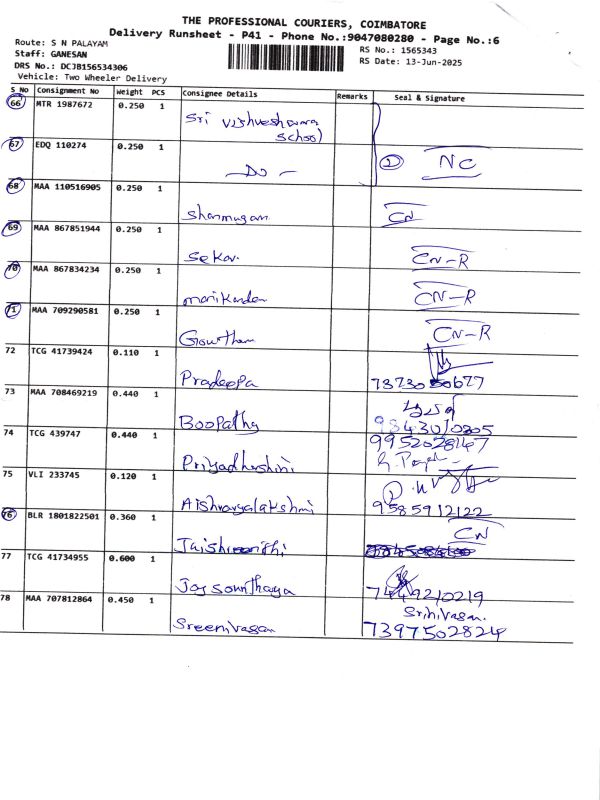 THE PROFESSIONAL COURIERS, COIMBATORE
Delivery Runsheet - P41 - Phone No.:9047080280 - Page No.:6
Route: S N PALAYAM
Staff: GANESAN
DRS No.: DCJB156534306
Vehicle: Two Wheeler Delivery
RS No.: 1565343
RS Date: 13-Jun-2025
S No Consignment No Weight PCS Consignee Details Remarks Seal & Signature
66 MTR 1987672 0.250 1
Sri Vishveshwara
School
67 EDQ 110274 0.250 1
- Do - 2 NC
68 MAA 110516905 0.250 1
Shanmugam CN
69 MAA 867851944 0.250 1
Sekar CN-R
70 MAA 867834234 0.250 1
Manikandan CN-R
71 MAA 709290581 0.250 1
Gowtham CN-R
72 TCG 41739424 0.110 1
Pradeepa
73 MAA 708469219 0.440 1
Boopathy
74 TCG 439747 0.440 1
9952028147
Priyadharshini
75 VLI 233745 0.120 1
Aishvaryalakshmi 9585912122
76 BLR 1801822501 0.360 1
CN
77 TCG 41734955 0.600 1
78 MAA 707812864 0.450 1
Srinivasan
Sreenivasan 7397502824